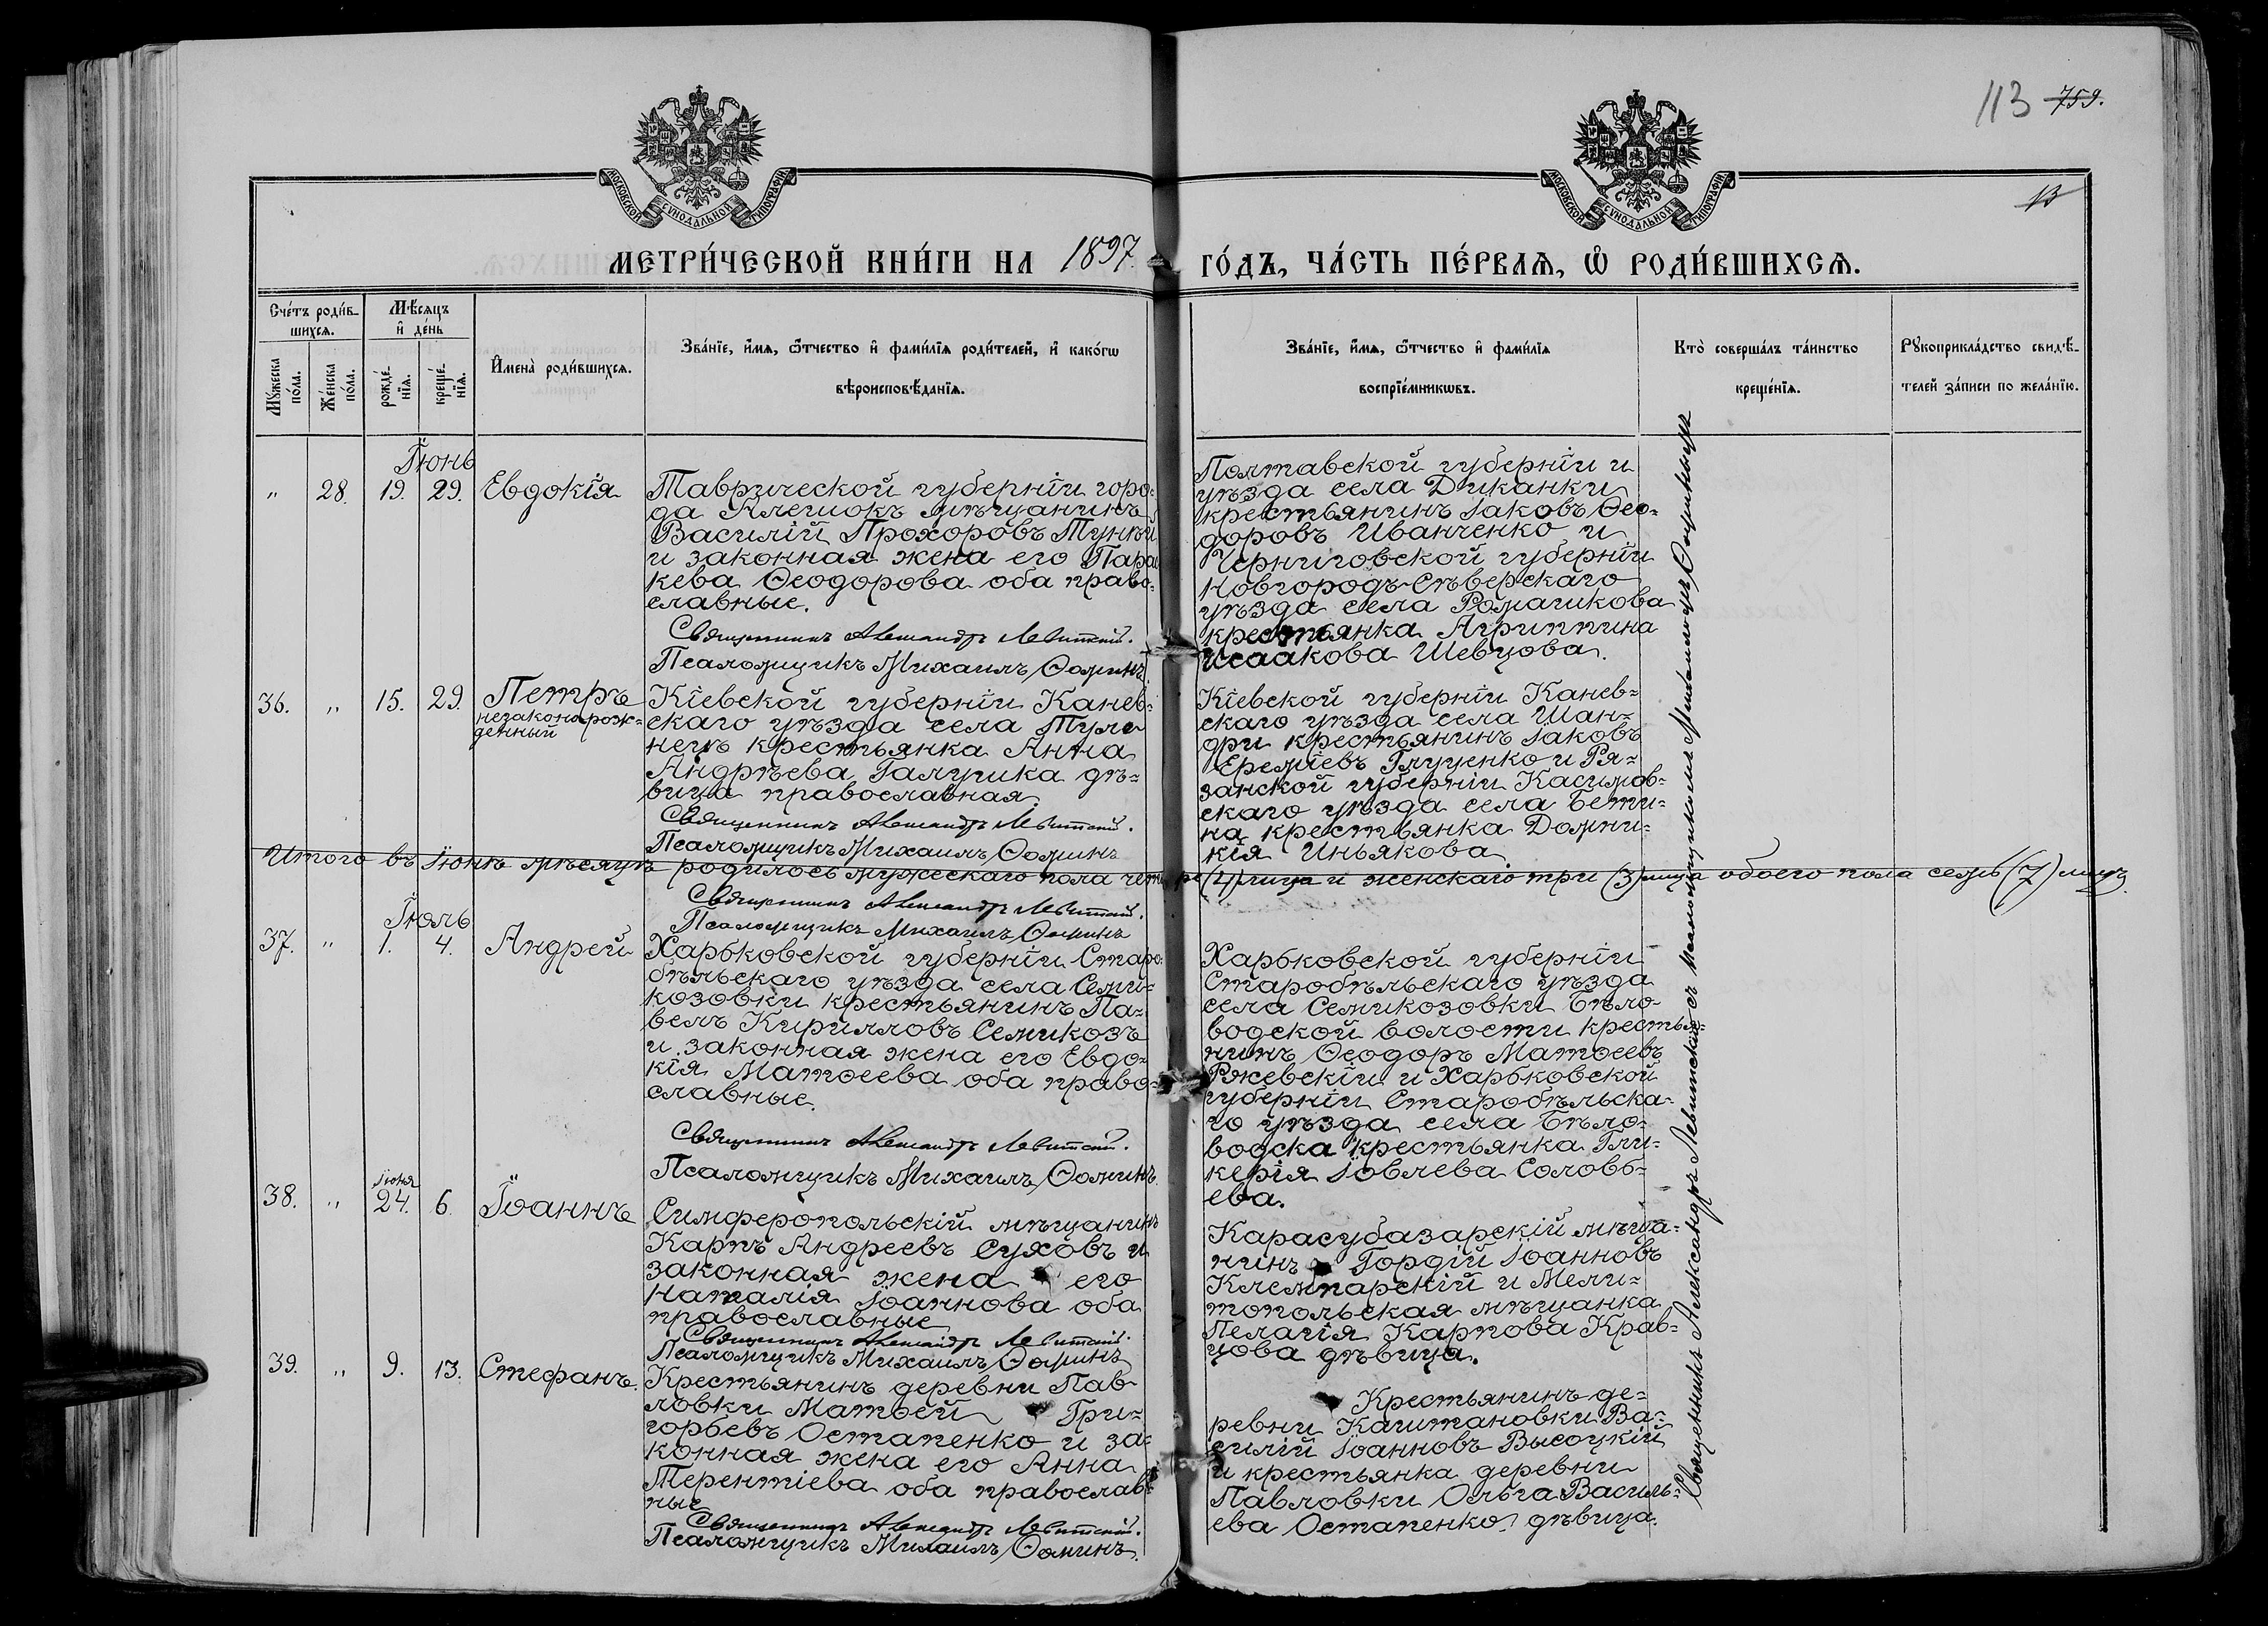 113 759.
13
МОСКОВСКОЙ СѴНОДАЛЬНОЙ ТИПОГРАФІИ
МОСКОВСКОЙ СѴНОДАЛЬНОЙ ТИПОГРАФІИ
МЕТРИ́ЧЕСКОЙ КНИ́ГИ НА 1897 ГО́ДЪ, ЧА́СТЬ ПЕ́РВАѦ, Ѽ РОДИ́ВШИХСѦ.
Сче́тъ роди́в-
шихсѧ.
Мꙋ́жеска
по́ла.
Же́нска
по́ла.
Мѣ́сѧцъ
и҆ де́нь
рожде́-
нїѧ.
креще́-
нїѧ.
И҆мена̀ роди́вшихсѧ.
Зва́нїе, и҆́мѧ, ѻ҆́тчество и҆ фами́лїѧ роди́телей, и҆ како́гѡ
вѣроисповѣ́данїѧ.
Зва́нїе, и҆́мѧ, ѻ҆́тчество и҆ фами́лїѧ
воспрїе́мникѡвъ.
Кто̀ соверша́лъ та́инство
креще́нїѧ.
Рꙋкоприкла́дство свидѣ́-
телей за́писи по жела́нїю.
Іюнь
" 28. 19. 29. Евдокія
Таврической губерніи горо-
да Алешокъ мѣщанинъ
Василій Прохоровъ
и законная жена его Парас
кева Ѳеодорова оба право-
славные.
Священникъ Александръ Левитскій.
Псаломщикъ Михаилъ Ѳоминъ.
Полтавской губерніи и
уѣзда села Диканки
крестьянинъ Іаковъ Ѳео-
доровъ Иванченко и
Черниговской губерніи
Новгородъ-Сѣверскаго
уѣзда села Ромашкова
крестьянка Агриппина
Исаакова Шевцова.
36. " 15. 29. Петръ
незаконнорож-
денный
Кіевской губерніи Канев-
скаго уѣзда села Тули-
нецъ крестьянка Анна
Андрѣева Галушка дѣ-
вица православная.
Священникъ Александръ Левитскій.
Псаломщикъ Михаилъ Ѳоминъ
Кіевской губерніи Канев-
скаго уѣзда села Шан-
дри крестьянинъ Іаковъ
Ереміевъ Глущенко и Ря-
занской губерніи Касимов-
скаго уѣзда села Бети-
на крестьянка Домни-
кія Иньякова
Итого въ Іюнѣ мѣсяцѣ родилось мужескаго пола четыре (4) лица и женскаго три (3) лица обоего пола семь (7) лицъ.
Священникъ Александръ Левитскій.
Псаломщикъ Михаилъ Ѳоминъ
Іюль
37. " 1. 4. Андрей
Харьковской губерніи Старо-
бѣльскаго уѣзда села Семи-
козовки крестьянинъ Па-
велъ Кирилловъ Семикозъ
и законная жена его Евдо-
кія Матѳеева оба право-
славные.
Священникъ Александръ Левитскій.
Псаломщикъ Михаилъ Ѳоминъ
Харьковской губерніи
Старобѣльскаго уѣзда
села Семикозовки Бѣло-
водской волости крестья-
нинъ Ѳеодоръ Матѳеевъ
Ржевскій и Харьковской
губерніи Старобѣльска-
го уѣзда села Бѣло-
водска крестьянка Гли-
керія Іовлева Соловь-
ева.
38. " Іюня 24. 6. Іоаннъ
Симферопольскій мѣщанинъ
Карпъ Андреевъ Суховъ и
законная жена его
Наталія Іоаннова оба
православные
Священникъ Александръ Левитскій.
Псаломщикъ Михаилъ Ѳоминъ
Карасубазарскій мѣща-
нинъ Гордій Іоанновъ
и Мели-
топольская мѣщанка
Пелагія Карпова Крав-
цова дѣвица.
39. " 9. 13. Стефанъ.
Крестьянинъ деревни Пав-
ловки Матѳей Гри-
горьевъ Остапенко и за-
конная жена его Анна
Терентіева оба православ-
ные
Священникъ Александръ Левитскій.
Псаломщикъ Михаилъ Ѳоминъ.
Крестьянинъ де-
ревни Каштановки Ва-
силій Іоанновъ Высоцкій
и крестьянка деревни
Павловки Ольга Василь-
ева Остапенко дѣвица.
Священникъ Александръ Левитскій съ псаломщикомъ Михаиломъ Ѳоминымъ